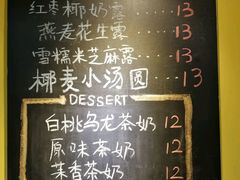 红枣椰奶露 13
燕麦花生露 13
雪糯米芝麻露 13
椰麦小汤圆 13
DESSERT
白桃乌龙茶奶 12
原味茶奶 12
茉香茶奶 12